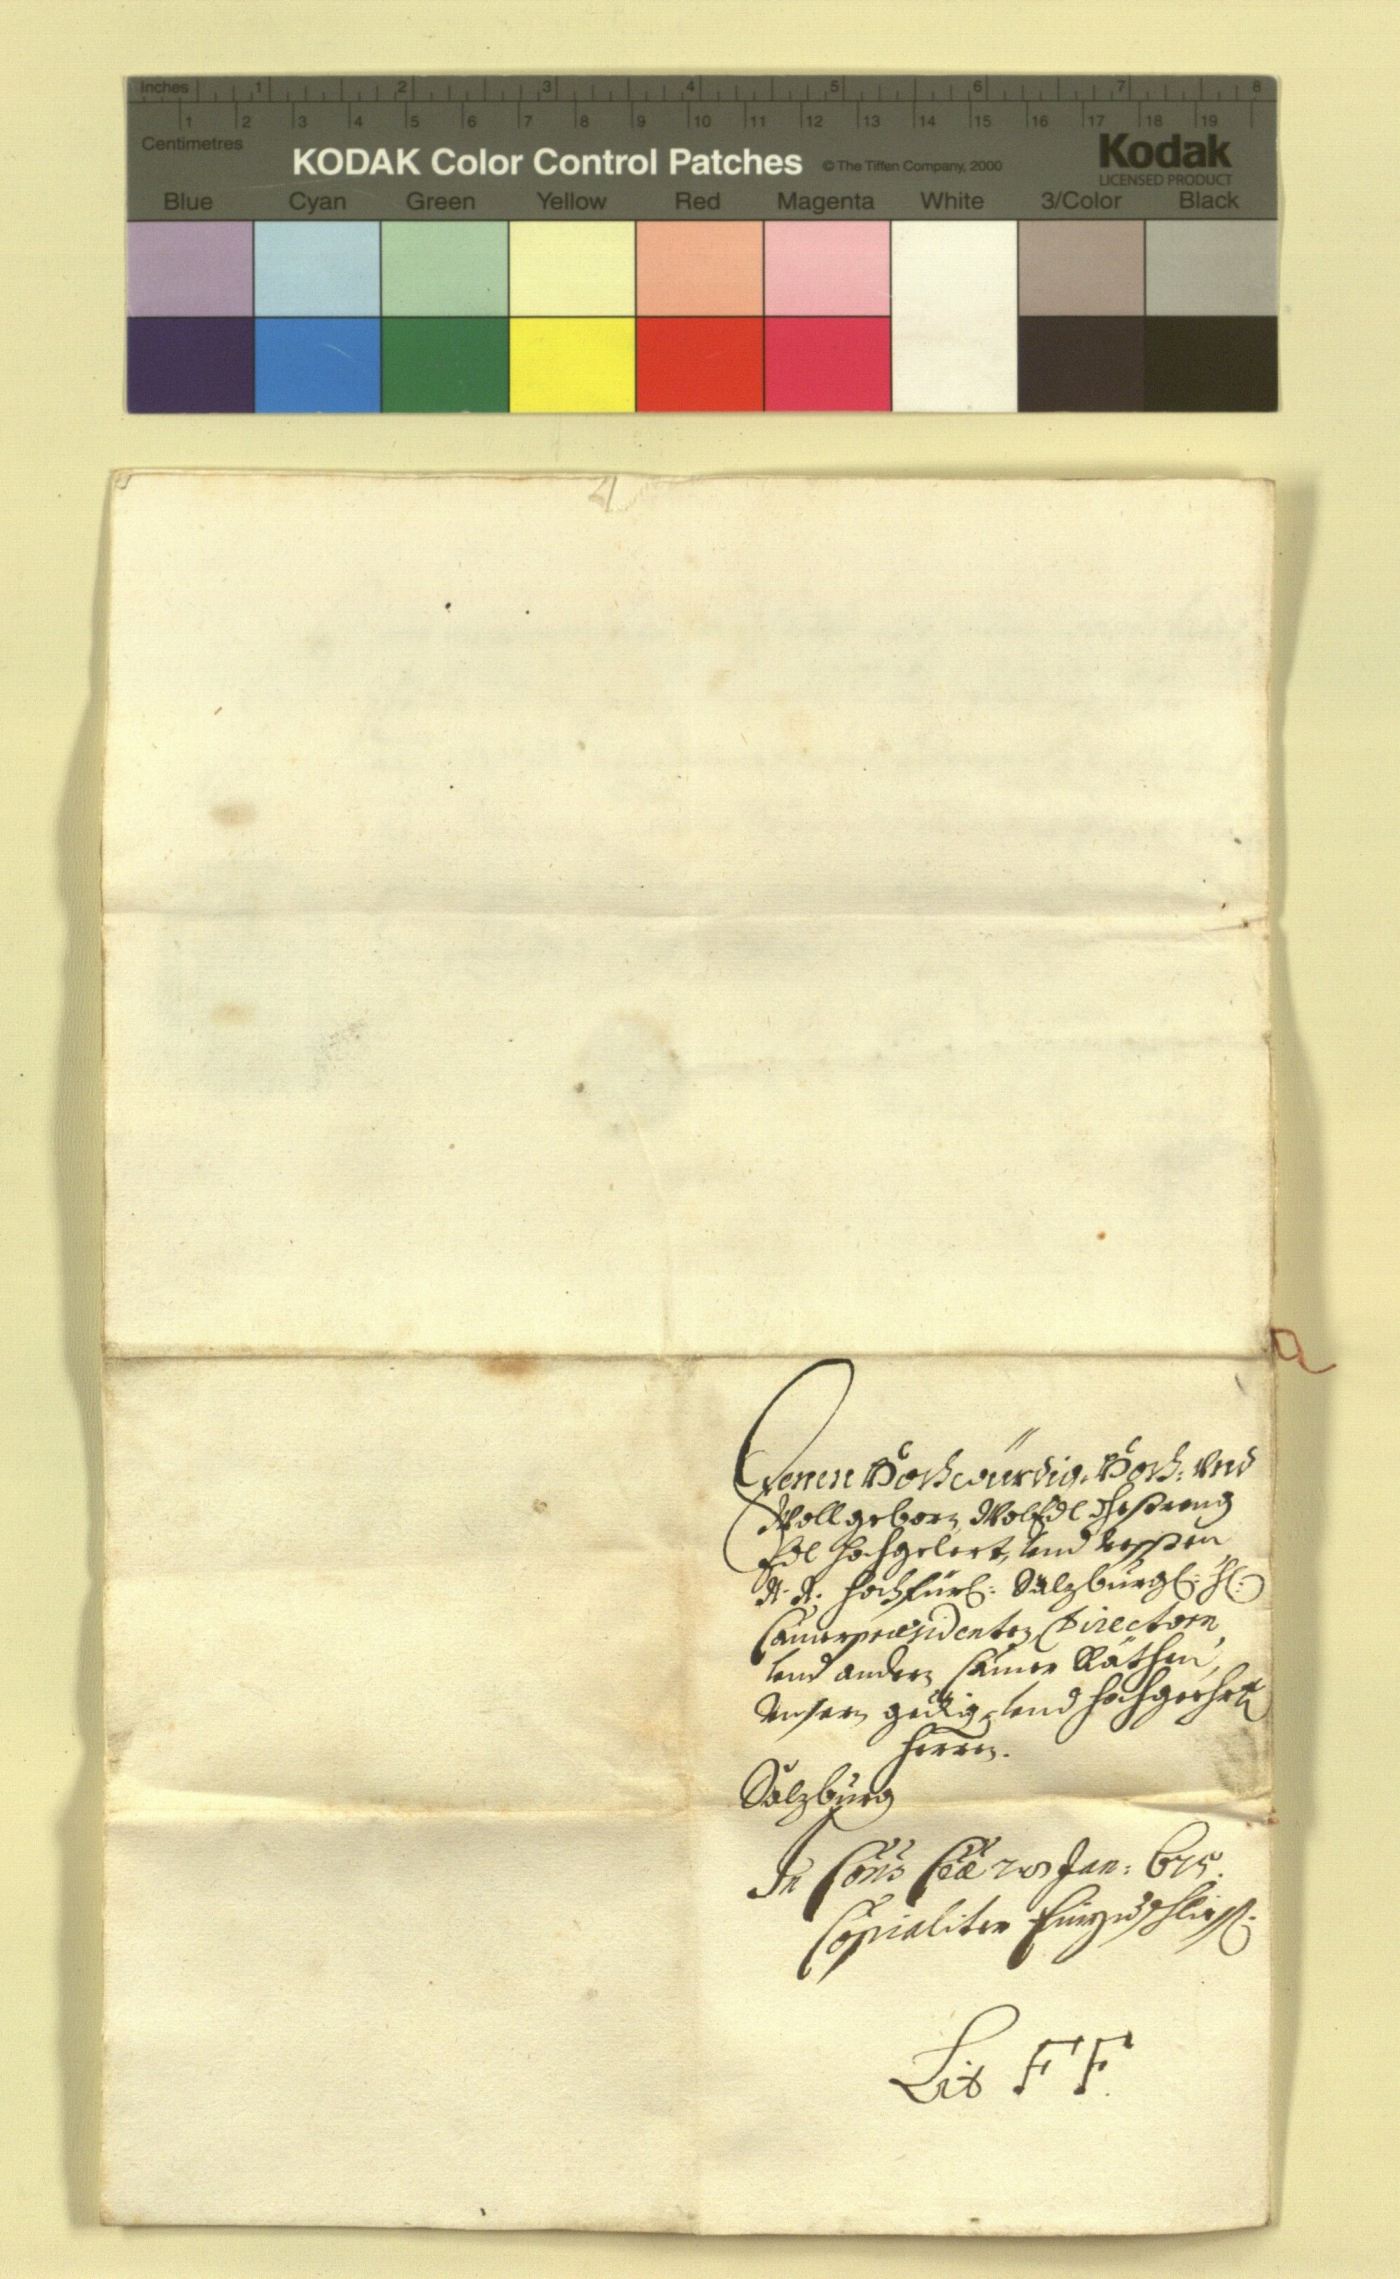 Inches 1 2 3 4 5 6 7 8
1 2 3 4 5 6 7 8 9 10 11 12 13 14 15 16 17 18 19
Centimetres
KODAK Color Control Patches © The Tiffen Company, 2000 Kodak
LICENSED PRODUCT
Blue Cyan Green Yellow Red Magenta White 3/Color Black
Denen Hochwürdig. Hoch: Vnd
Wollgeborn, WolEdl Gestreng
Edl hochgelert, vnd vessten
N: N: hochfürl: Salzburgl: H:
Camerpraesidenten, Directorn
vnd andern Camer Räthen,
Vnsern gnedig: vnd hochgeehrt
Herren.
Salzburg
In Jan: 675.
Copialiter Einzuschliess:
Lit FF.